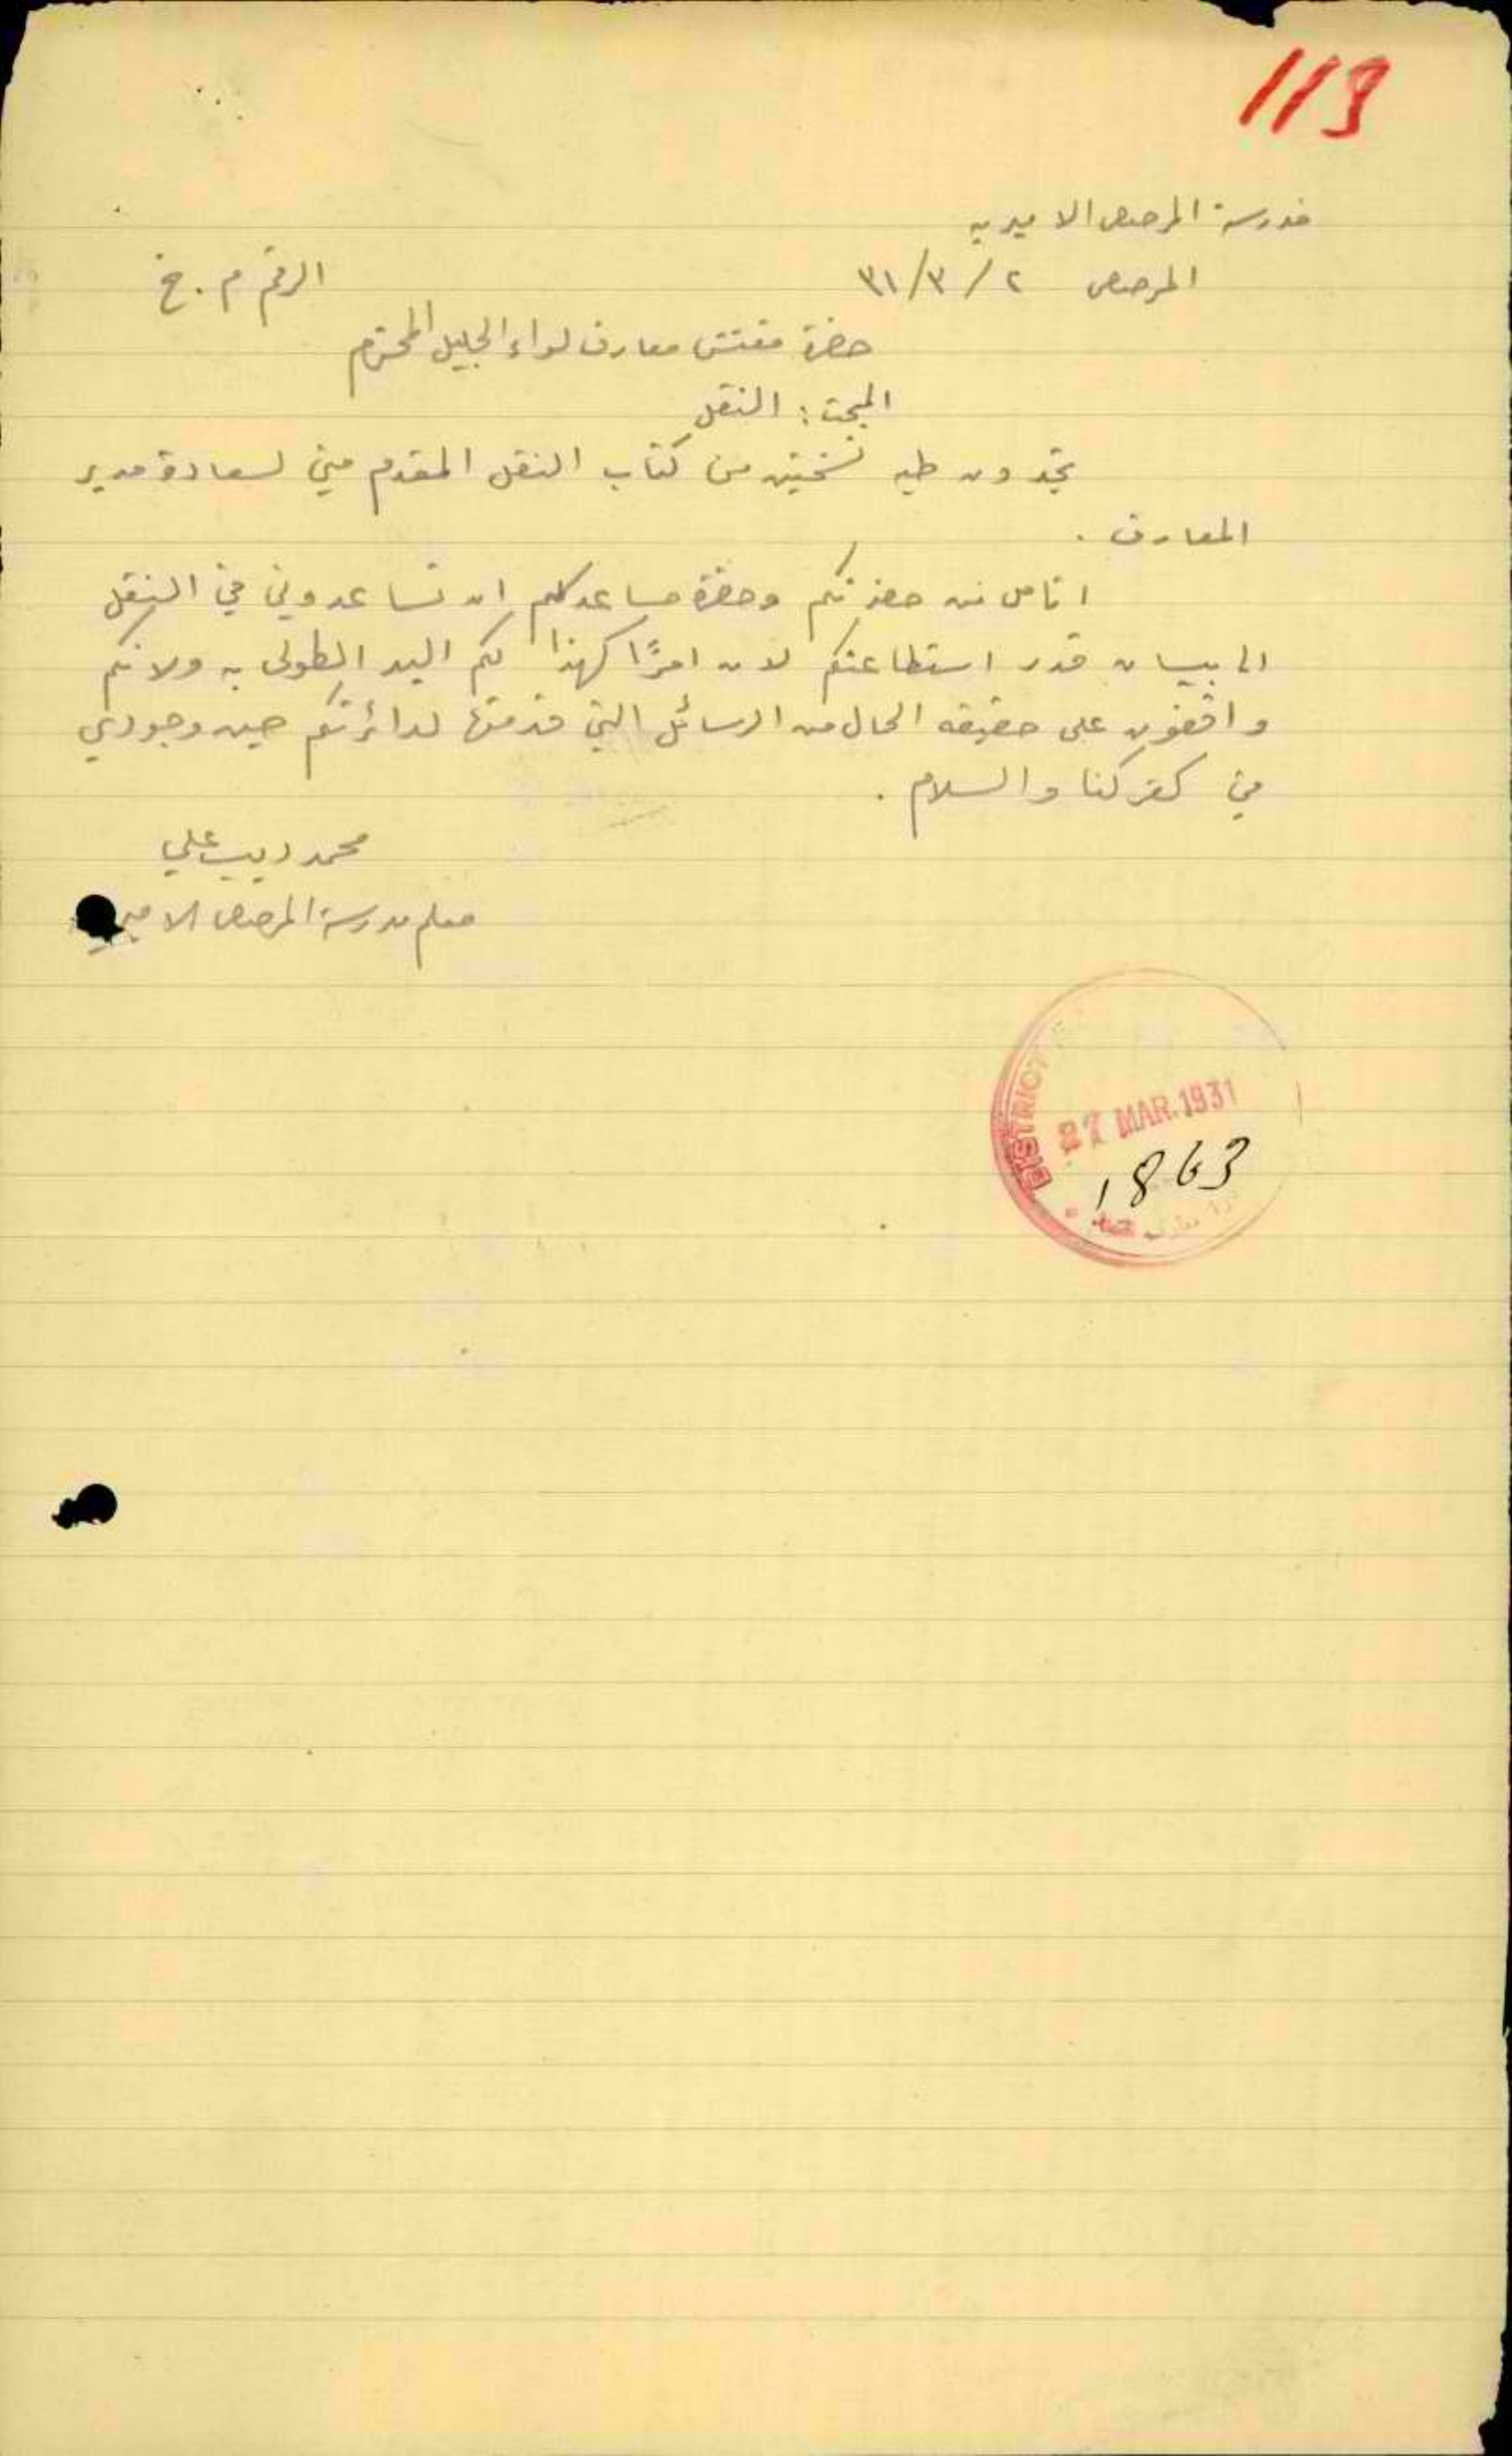 113
مدرسة المرصص الاميريه
المرصص ٢ / ٣ / ٣١
الرقم م . خ
حضرة مفتش معارف لواء الجليل المحترم
المبحث : النقل
تجدون طيه نسختين من كتاب النقل المقدم مني لسعادة مدير
المعارف .
اتامل من حضرتكم وحضرة مساعدكم ان تساعدوني في النقل
الى بيسان قدر استطاعتكم لان امرًا كهذا لكم اليد الطولى به ولانكم
واقفون على حقيقه الحال من الرسائل التي قدمتها لدائرتكم حين وجودي
في كفركنا والسلام .
محمد ديب علي
معلم مدرسة المرصص الاميريه
DISTRICT
27 MAR.1931
1863